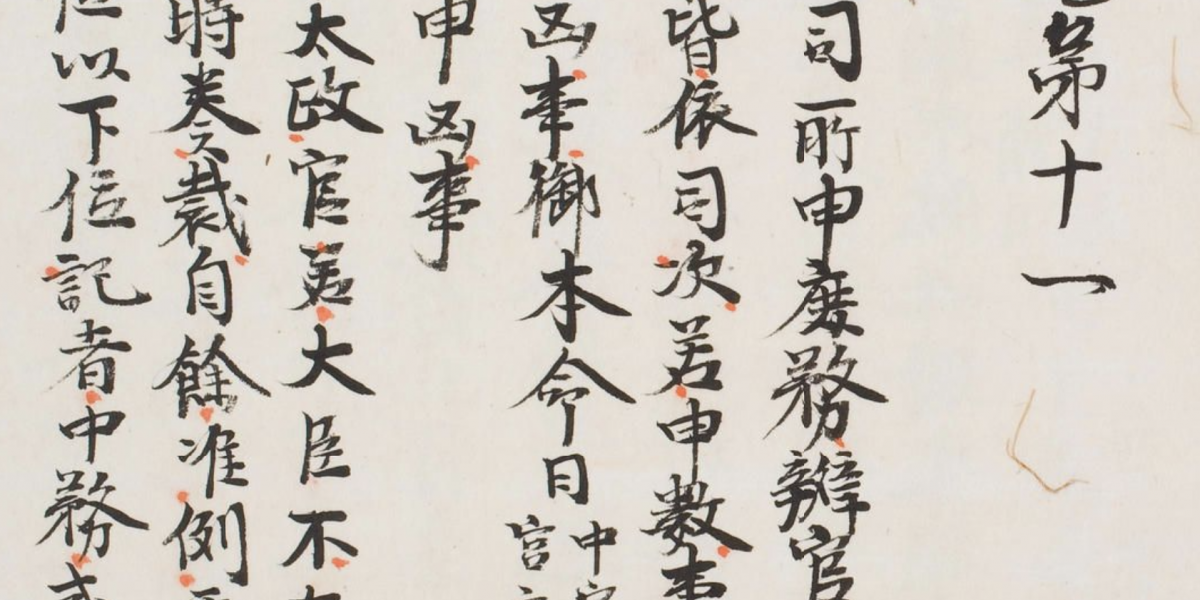 第十一
司所申庶務辨官
皆依司次若申數事
凶事御本命日中宮
申凶事
太政官若大臣不
時奏裁自餘准例
以下位記者中務